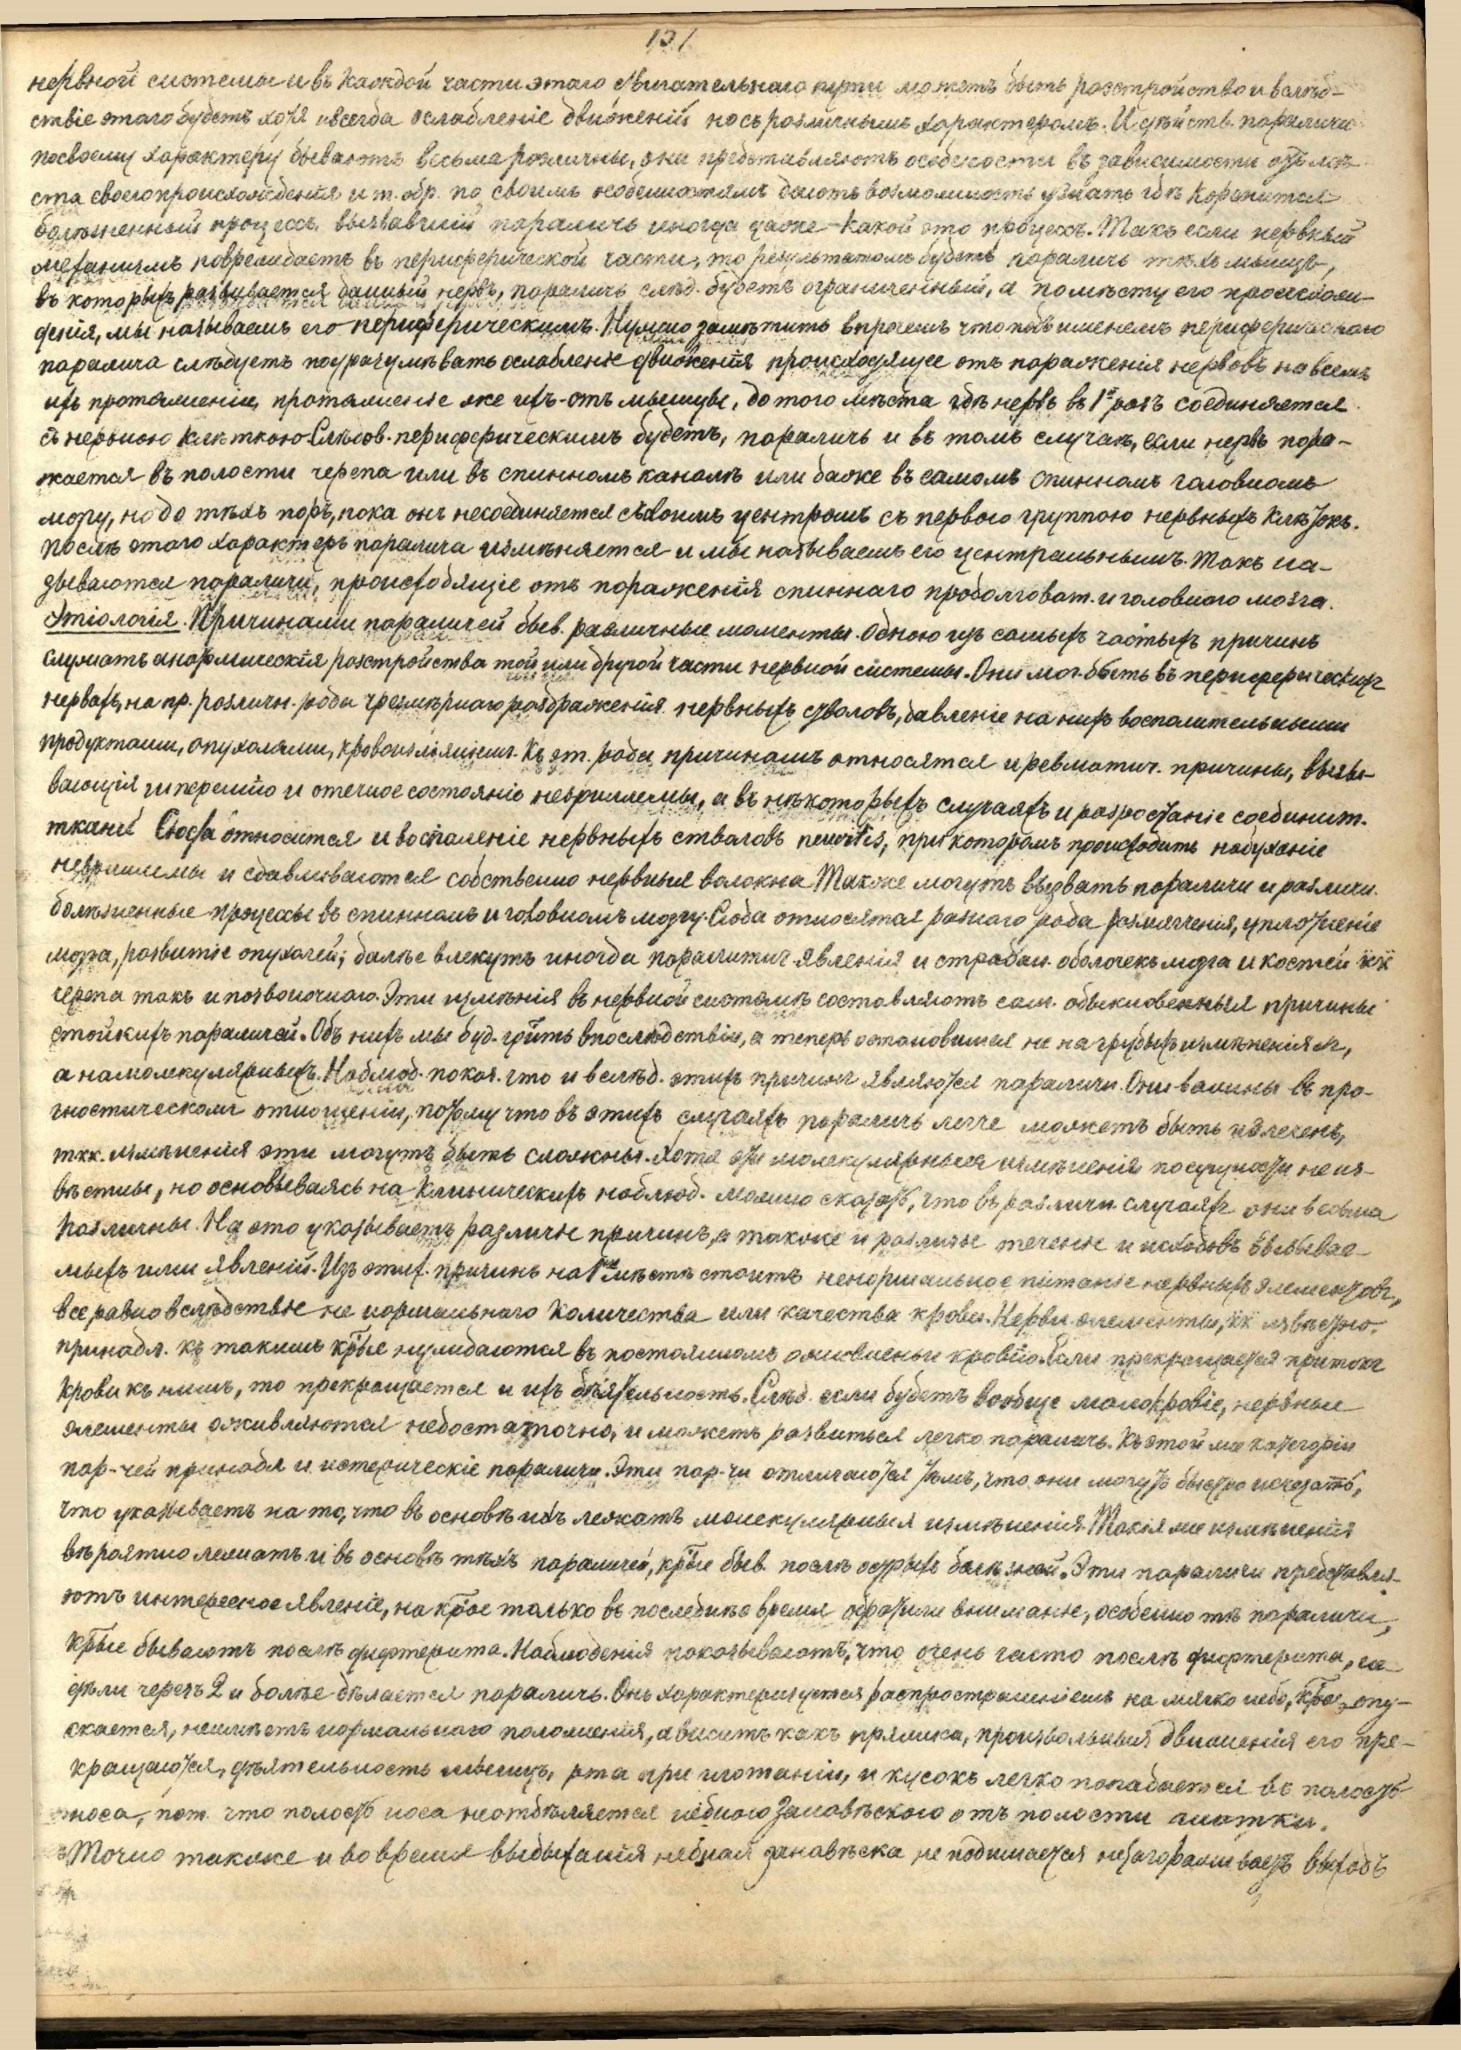 131
нервной системы и въ каждой части этого двигательнаго пути можетъ быть разстройство и вслѣд-
ствіе этого будетъ хотя и всегда ослабленіе движеній но съ различнымъ характеромъ. И дѣйств. параличи
по своему характеру бываютъ весьма различны, они представляютъ особености въ зависимости отъ мѣ-
ста своего происхожденія и т. обр. по своимъ особенностямъ даютъ возможность узнать гдѣ коренится
болѣзненный процессъ вызвавшій параличъ иногда даже какой это процессъ. Такъ если нервный
механизмъ повреждаетъ въ периферической части, то результатомъ будетъ параличъ тѣхъ мышцъ,
въ которыхъ развивается данный нервъ, параличъ слѣд. будетъ ограниченный, а по мѣсту его происхож-
денія, мы называемъ его периферическимъ. Нужно замѣтить впрочемъ что подъ именемъ периферическаго
паралича слѣдуетъ подразумѣвать ослабленіе движенія происходящее отъ пораженія нервовъ на всемъ
ихъ протяженіи, протяженіе же ихъ - отъ мышцы, до того мѣста гдѣ нервъ въ 1й разъ соединяется
съ нервною клѣткою. Слѣдов. периферическимъ будетъ, параличъ и въ томъ случаѣ, если нервъ пора-
жается въ полости черепа или въ спинномъ каналѣ или даже въ самомъ спинномъ головномъ
мозгу, но до тѣхъ поръ, пока онъ несоединяется съ своимъ центромъ съ первою группою нервныхъ клѣтокъ.
Послѣ этого характеръ паралича измѣняется и мы называемъ его центральнымъ. Такъ на-
зываются параличи, происходящіе отъ пораженія спиннаго продолговат. и головнаго мозга.
Этіологія. Причинами параличей быв. различные моменты. Одною изъ самыхъ частыхъ причинъ
служатъ анатомическія разстройства той или другой части нервной системы. Они мог. быть въ периферическихъ
нервахъ, на пр. различн. рода чрезмѣрнаго раздраженія нервныхъ стволовъ, давленіе на нихъ воспалительными
продуктами, опухолями, кровоизліяніем. Къ эт. рода причинамъ относятся и ревматич. причины, вызы-
вающія гиперемію и отечное состояніе неврилеммы, а въ нѣкоторыхъ случаяхъ и разростаніе соединит.
ткани. Сюда относится и воспаленіе нервныхъ стволовъ neuritis, при которомъ происходитъ набуханіе
неврилеммы и сдавливаются собственно нервныя волокна. Также могутъ вызвать параличи и различн.
болѣзненные процессы въ спинномъ и головномъ мозгу. Сюда относятся разнаго рода размягченія, уплотненіе
мозга, развитіе опухолей; далѣе влекутъ иногда паралитич. явленія и страдан. оболочекъ мозга и костей кк
черепа такъ и позвоночнаго. Эти измѣнія въ нервной системѣ составляютъ сам. обыкновенныя причины
стойкихъ параличей. Объ нихъ мы буд. грить впослѣдствіи, а теперь остановимся не на грубыхъ измѣненіяхъ,
а на молекулярныхъ. Наблюд. показ. что и вслѣд. этихъ причинъ являются параличи. Они важны въ про-
гностическомъ отношеніи, потому что въ этихъ случаяхъ параличъ легче можетъ быть излеченъ,
ткк. измѣненія эти могутъ быть сложны. Хотя эти молекулярныя измѣненія по сущности не из-
вѣстны, но основываясь на клиническихъ наблюд. можно сказать, что въ различн. случаяхъ они весьма
различны. На это указываетъ различіе причинъ, а также и различіе теченіе и исходовъ вызывае-
мыхъ ими явленій. Изъ этих. причинъ на 1мъ мѣстѣ стоитъ ненормальное питаніе нервныхъ элементовъ,
все равно вслѣдствіе не нормальнаго количества или качества крови. Нервн. элементы, кк извѣстно.
принадл. къ такимъ крые нуждаются въ постоянномъ оживленіи кровію. Если прекращается притокъ
крови къ нимъ, то прекращается и ихъ дѣятельность. Слѣд. если будетъ вообще малокровіе, нервные
элементы оживляются недостаточно, и можетъ развиться легко параличъ. Къ этой же категоріи
пар-чей принадл и истерическіе параличи. Эти пар-чи отличаются тѣмъ, что они могутъ быстро исчезать,
что указываетъ на то, что въ основѣ ихъ лежатъ молекулярныя измѣненія. Такія же измѣненія
вѣроятно лежатъ и въ основѣ тѣхъ параличей, крые быв. послѣ острыхъ болѣзней. Эти параличи представля-
ютъ интересное явленіе, на крое только въ послѣднее время обратили вниманіе, особенно тѣ параличи,
крые бываютъ послѣ дифтерита. Наблюденія показываютъ, что очень часто послѣ дифтерита, не-
дѣли черезъ 2 и болѣе дѣлается параличъ. Онъ характеризуется распространеніемъ на мягко небо, крое опу-
скается, неимѣетъ нормальнаго положенія, а виситъ какъ тряпка, произвольныя движенія его пре-
кращаются, дѣятельность мышцъ, рта при глотаніи, и кусокъ легко попадается въ полость
носа, пот. что полость носа неотдѣляется небною занавѣскою отъ полости глотки.
Точно также и во время выдыханія небная занавѣска не поднимается незагораживаетъ выходъ